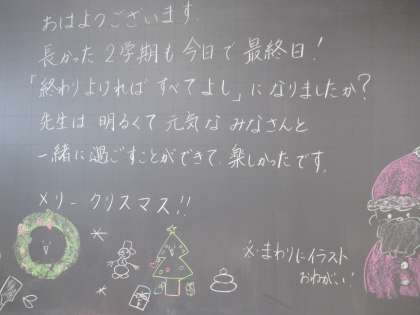 おはようございます.
長かった2学期も今日で最終日!
「終わりよければすべてよし」になりましたか?
先生は明るくて元気なみなさんと
一緒に過ごすことができて,楽しかったです.
メリークリスマス!!
※まわりにイラスト
おねがい